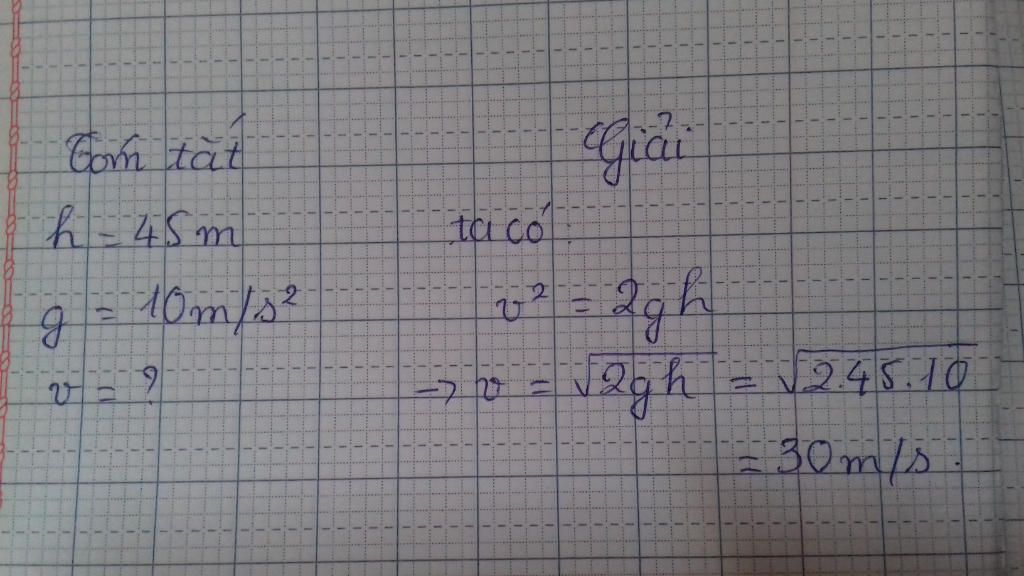 Tóm tắt
h = 45m
g = 10m/s²
v = ?
Giải
ta có:
v² = 2gh
→ v = √2gh = √2.45.10
= 30m/s.